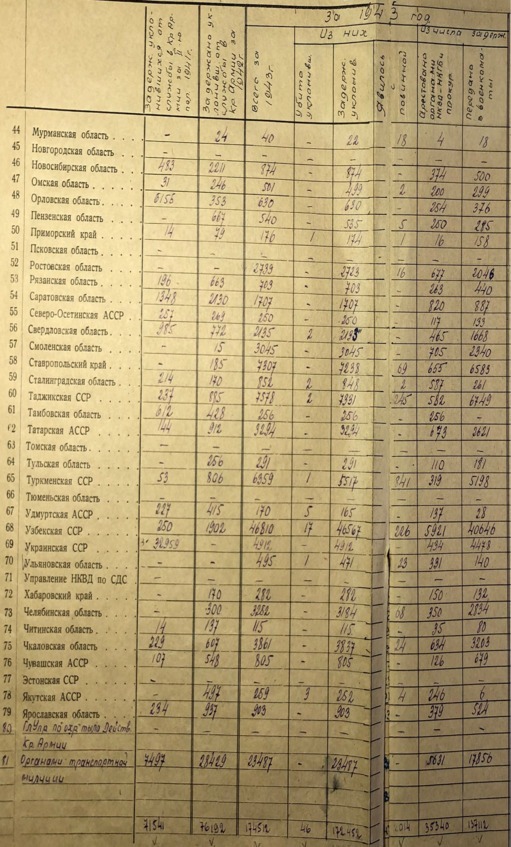 За 1943 год
Из них
Из числа задерж.
Задерж. укло-
нившихся от
службы в Кр. Ар-
мии за II ю
пол. 1941 г.
Задержано ук-
лонивш. от
службы в
Кр. Армии за
1942 г.
Всего за
1943 г.
Убито
уклонивш.
Задерж.
уклонив.
Явилось
повинной
Арестовано
органами
НКВД-НКГБ и
прокур.
Передано
в военкома-
ты
44 Мурманская область - 24 40 - 22 18 4 18
45 Новгородская область - - - - - - - -
46 Новосибирская область 483 2211 874 - 874 - 374 500
47 Омская область 31 246 501 - 499 2 200 299
48 Орловская область 6155 353 630 - 630 - 254 376
49 Пензенская область - 667 540 - 535 5 250 285
50 Приморский край 14 79 176 1 174 1 16 158
51 Псковская область - - - - - - - -
52 Ростовская область - - 2739 - 2723 16 677 2046
53 Рязанская область 196 663 703 - 703 - 263 440
54 Саратовская область 1348 2130 1707 - 1707 - 820 887
55 Северо-Осетинская АССР 257 269 250 - 250 - 117 133
56 Свердловская область 985 772 2135 2 2133 - 465 1668
57 Смоленская область - 15 3045 - 3045 - 705 2340
58 Ставропольский край - 185 7307 - 7238 69 655 6583
59 Сталинградская область 214 170 852 2 848 2 587 261
60 Таджикская ССР 237 885 7578 2 7331 245 582 6749
61 Тамбовская область 612 428 256 - 256 - 256 -
62 Татарская АССР 144 912 3294 - 3294 - 673 2621
63 Томская область - - - - - - - -
64 Тульская область - 256 291 - 291 - 110 181
65 Туркменская ССР 53 806 6359 1 5517 841 319 5198
66 Тюменьская область - - - - - - - -
67 Удмуртская АССР 227 415 170 5 165 - 137 28
68 Узбекская ССР 250 1902 46810 17 46567 226 5921 40646
69 Украинская ССР 32959 - 4912 - 4912 - 434 4478
70 Ульяновская область - - 495 1 471 23 331 140
71 Управление НКВД по СДС - - - - - - - -
72 Хабаровский край - 170 282 - 282 - 150 132
73 Челябинская область - 300 3282 - 3184 98 350 2834
74 Читинская область 14 137 115 - 115 - 35 80
75 Чкаловская область 229 607 3861 - 3837 24 634 3203
76 Чувашская АССР 107 548 805 - 805 - 126 679
77 Эстонская ССР - - - - - - - -
78 Якутская АССР - 497 259 3 252 4 246 6
79 Ярославская область 234 937 903 - 903 - 379 524
80 Группа по охр. тыла Действ.
Кр. Армии - - - - - - - -
81 Органами транспортной
милиции 7497 28429 23487 - 23487 - 5631 17856
71541 76192 174512 46 172452 2014 35340 137112